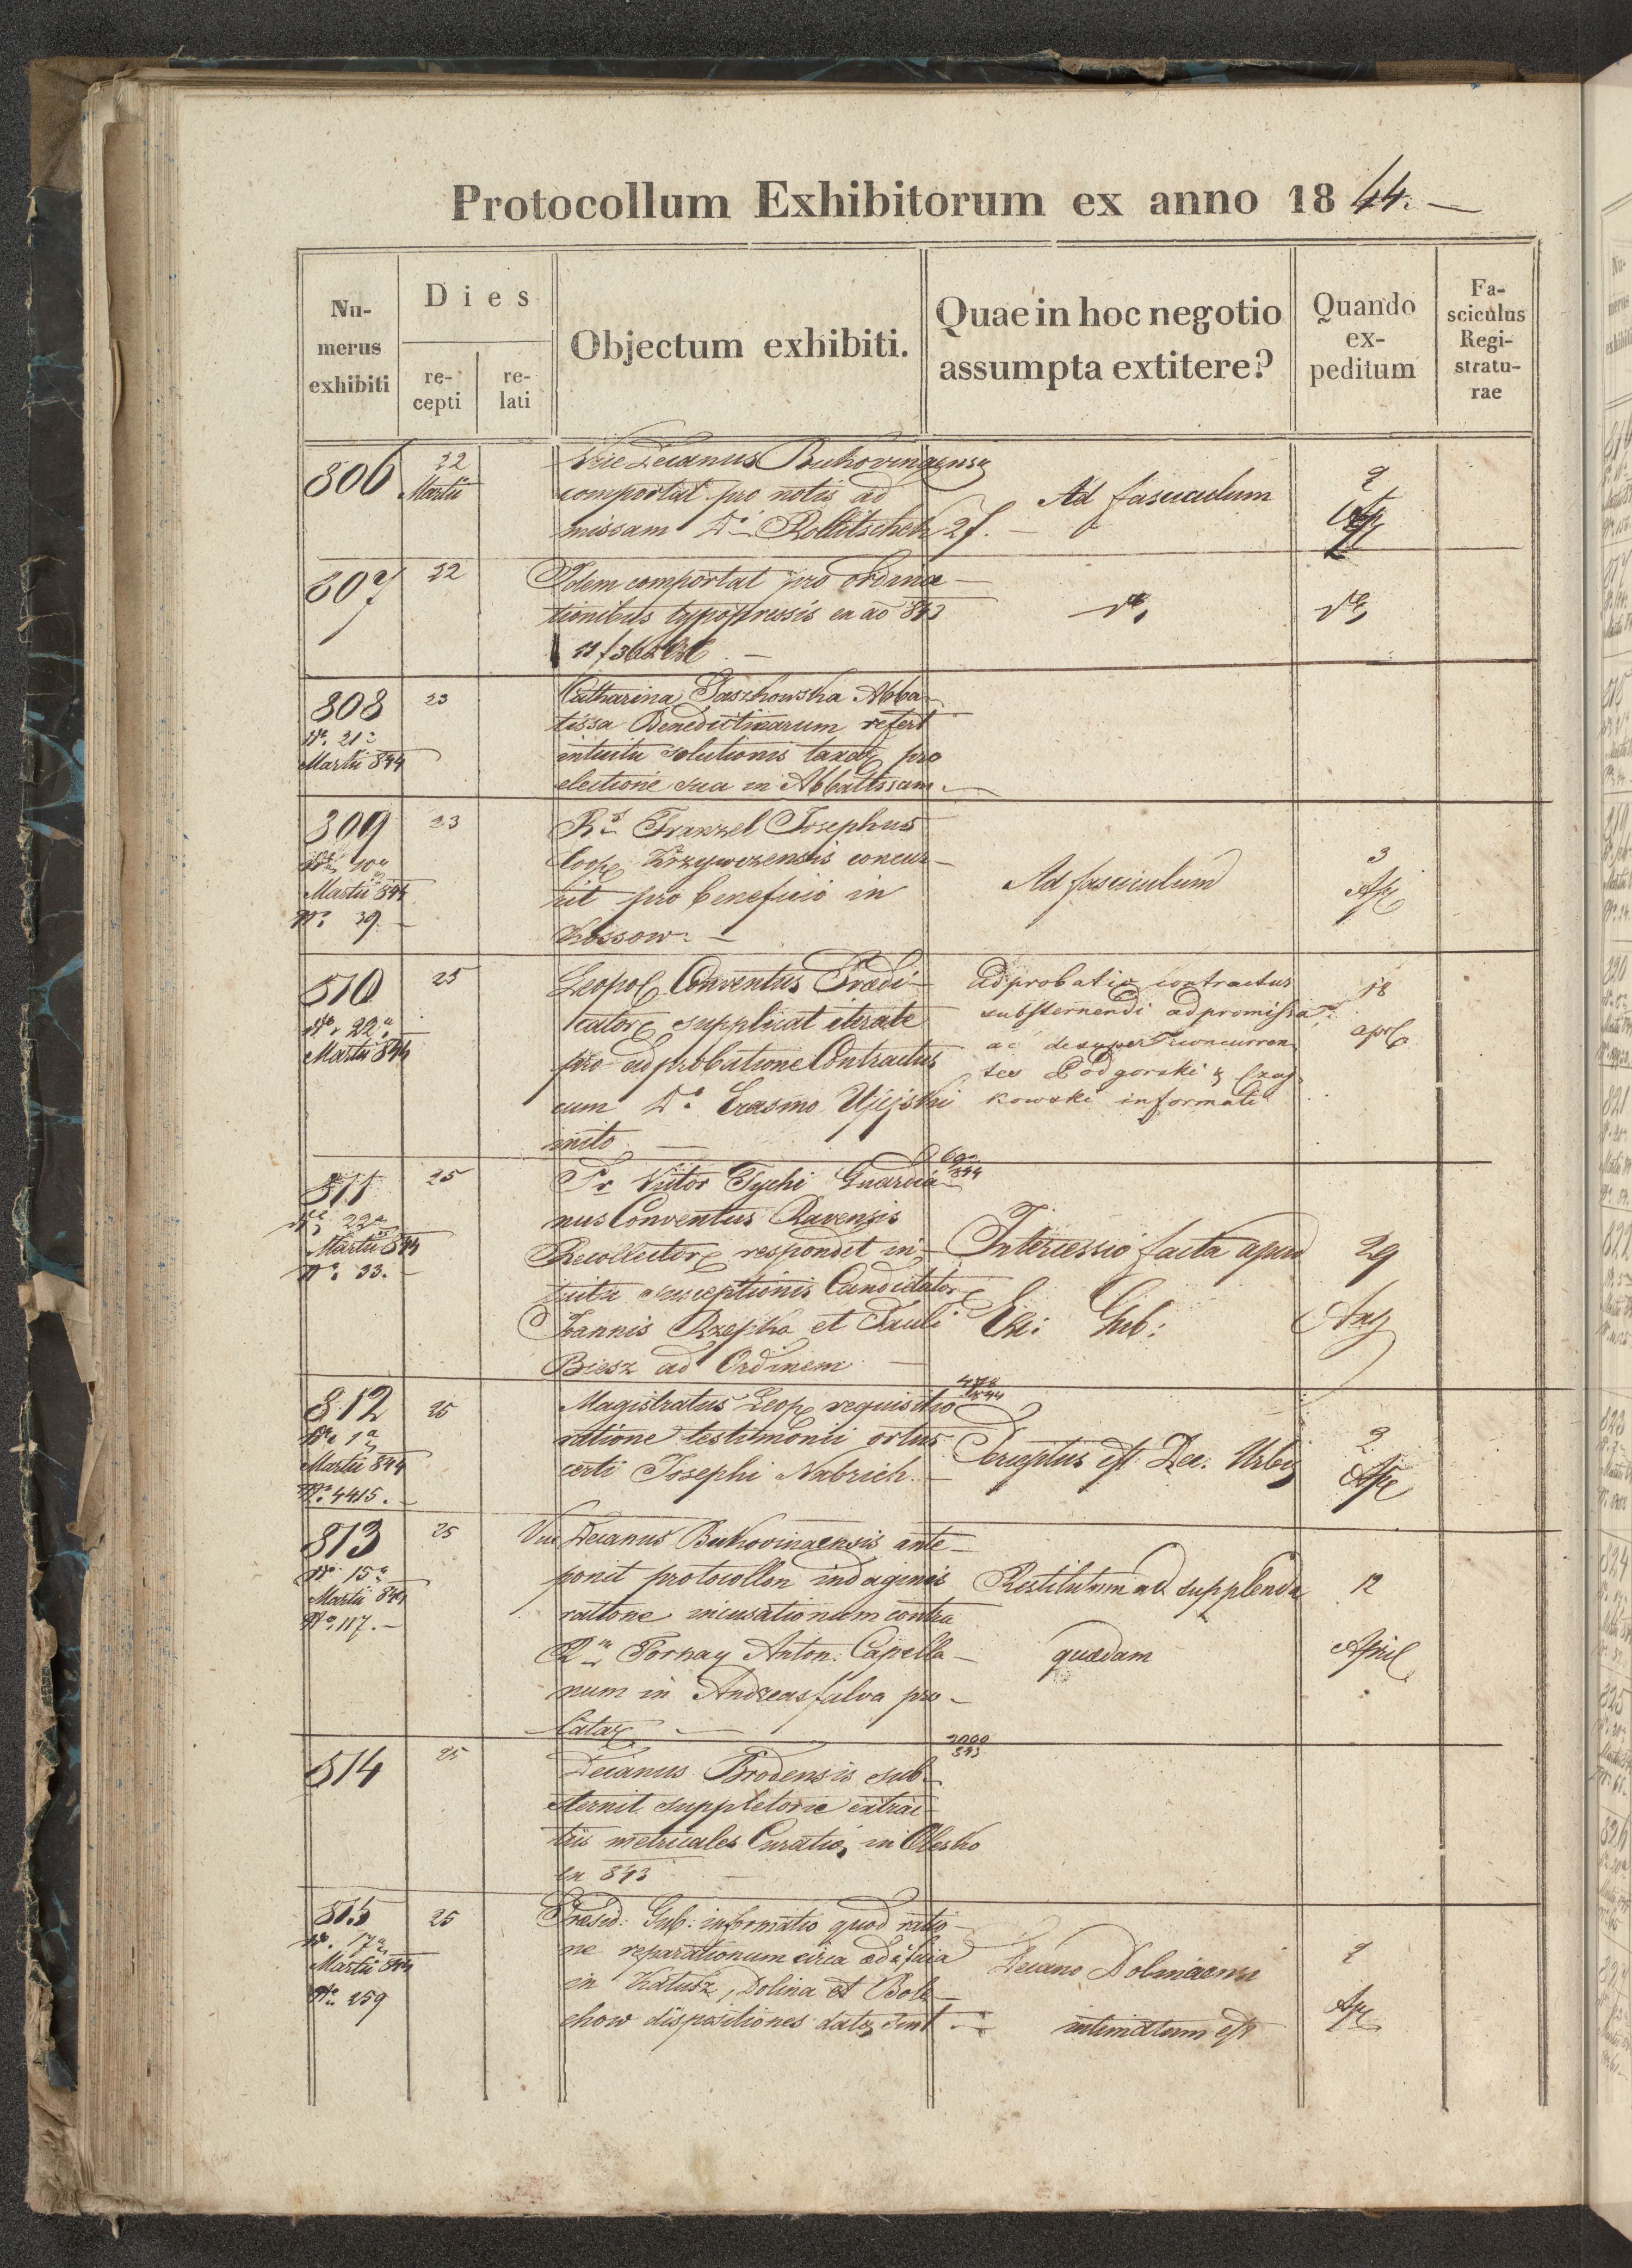 Protocollum Exhibitorum ex anno 1844.
Nu-
merus
exhibiti
Dies
re-
cepti
re-
lati
Objectum exhibiti.
Quae in hoc negotio
assumpta extitere?
Quando
ex-
peditum
Fa-
sciculus
Regi-
stratu-
rae
806
22
Martii
Vice Decanus
comportat pro notis ad
missam
Ad fasciculum
2
807
22
Idem comportat pro ordina-
tionibus typopressis ex ao 843
808
23
21a
Martii 844
Catharina Abba-
tissa Benedictinarum refert
intuitu solutionis pro
electione sua in Abbatissam.
809
23
10a
Martii 844
No. 39
Rd. Franzel Josephus
Coop concur-
rit pro beneficio in
Kossow.
Ad fasciculum
3
Apl
810
25
22a
Martii 844
Leopol Conventus Predi-
cator supplicat iterate
pro adprobatione Contractus
cum Do. Erasmo
inito
Adprobatio contractus
substernendi adpromissa
ac desuper concurren
tes Podgorski &
kowski informati
18
apl
811
25
22a
Martii 844
No. 33.
Fr. Victor Tychi Guardia-
nus Conventus Ravensis
Recollector respondet in-
tuitu susceptionis Candidator
Joannis Rzepka et Pauli
Biesz ad Ordinem
844
Intercessio facta apud
Ex: Gub:
29
812
25
1a
Martii 844
No. 4415.
Magistratus Leop requisitio
ratione testimonii ortus
certi Josephi Nabrich.
478
1844
est Dec. Urbis
Apl
813
25
15a
Martii 844
No. 117.
Vice Decanus Bukovinaensis ante-
ponit protocollon indaginis
ratione incusationum contra
Rm Tornay Anton. Capella-
num in Andreasfalva pro-
latar
Restitutum ad supplenda
quaedam
12
April
814
25
Decanus Brodensis sub-
sternit suppletorie extrac-
tus metricales in Olesko
ex 843
2000
843
815
25
17a
Martii 844
No 259
Presid: Gub: informatio quod ratio-
ne reparationum circa aedificia
in Katusz, Dolina et Bole-
chow dispositiones sint
Decano
intimatum est
Apl